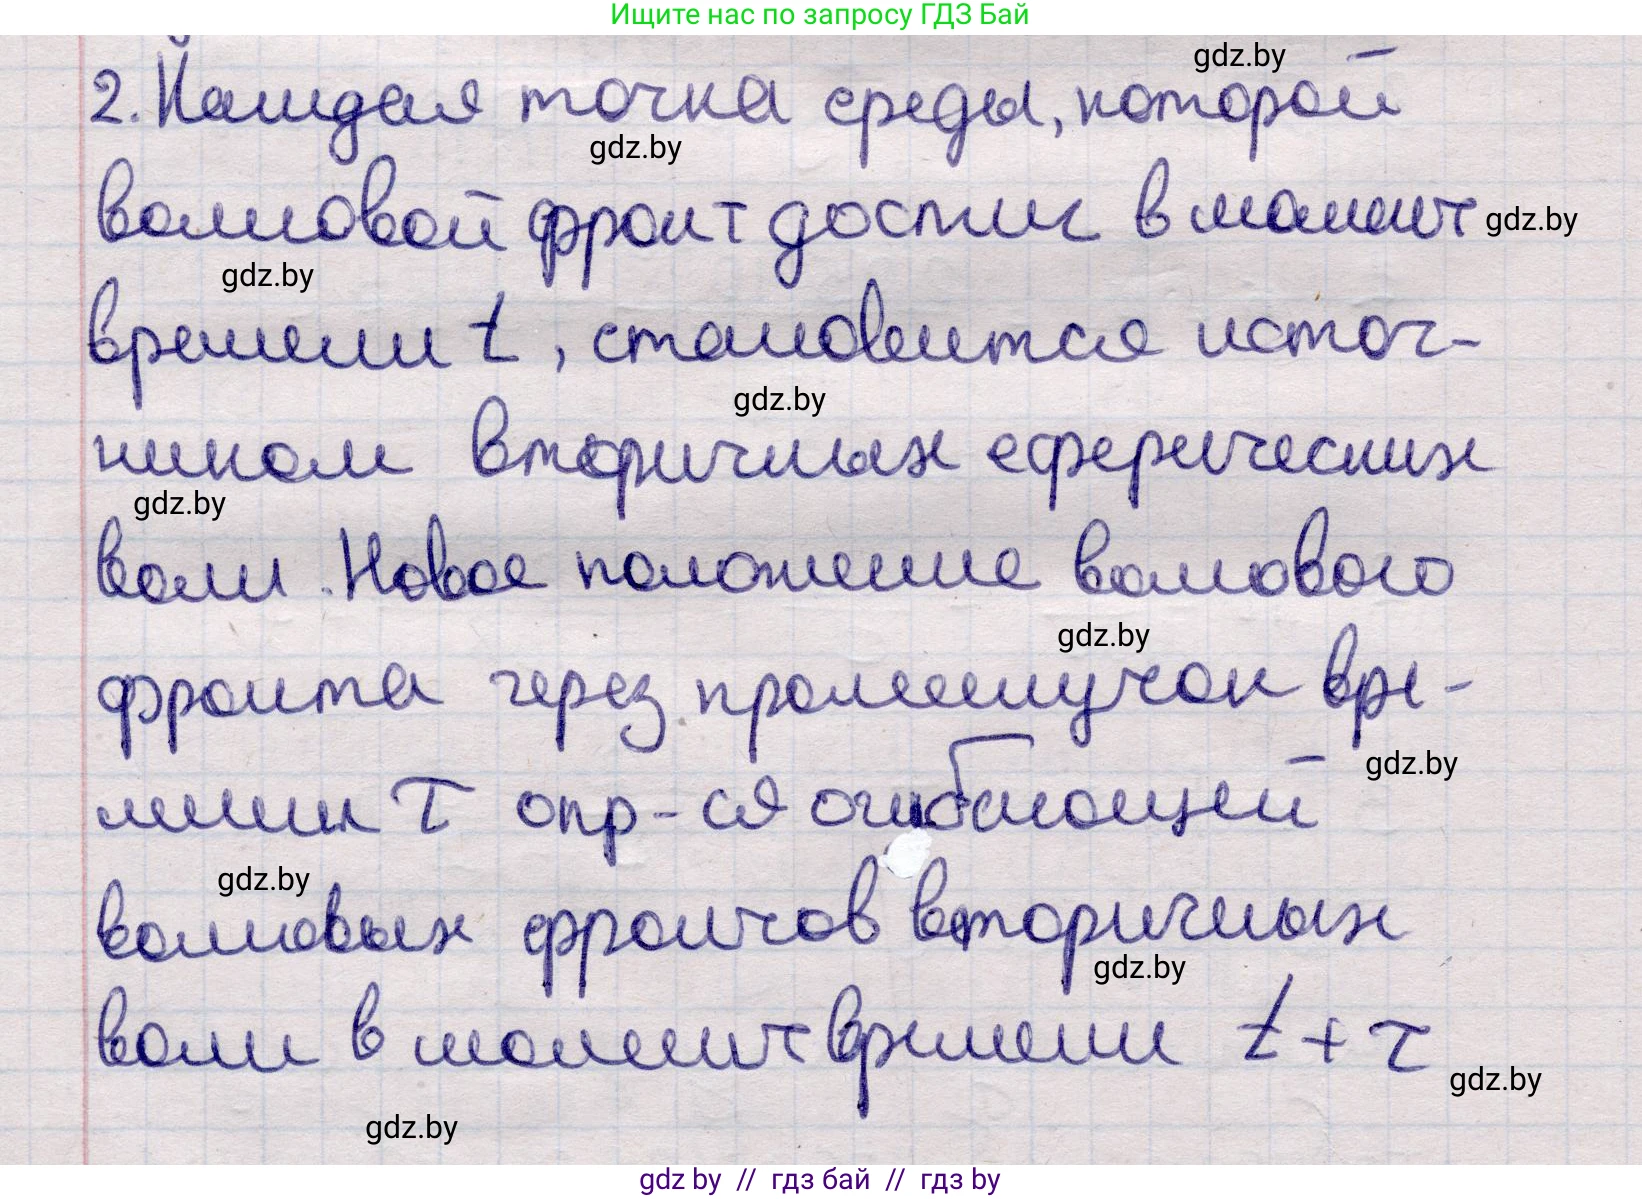 Ищите нас по запросу ГДЗ Бай
gdz.by
2. Каждая точка среды, которой
gdz.by
волновой фронт достиг в момент gdz.by
gdz.by
времени t, становится источ-
gdz.by
ником вторичных сферических
gdz.by
волн. Новое положение волнового
gdz.by
фронта через промежуток вре-
gdz.by
мени τ опр-ся огибающей
gdz.by
волновых фронтов вторичных
gdz.by
волн в момент времени t + τ
gdz.by
gdz.by
gdz by // гдз бай // гдз by